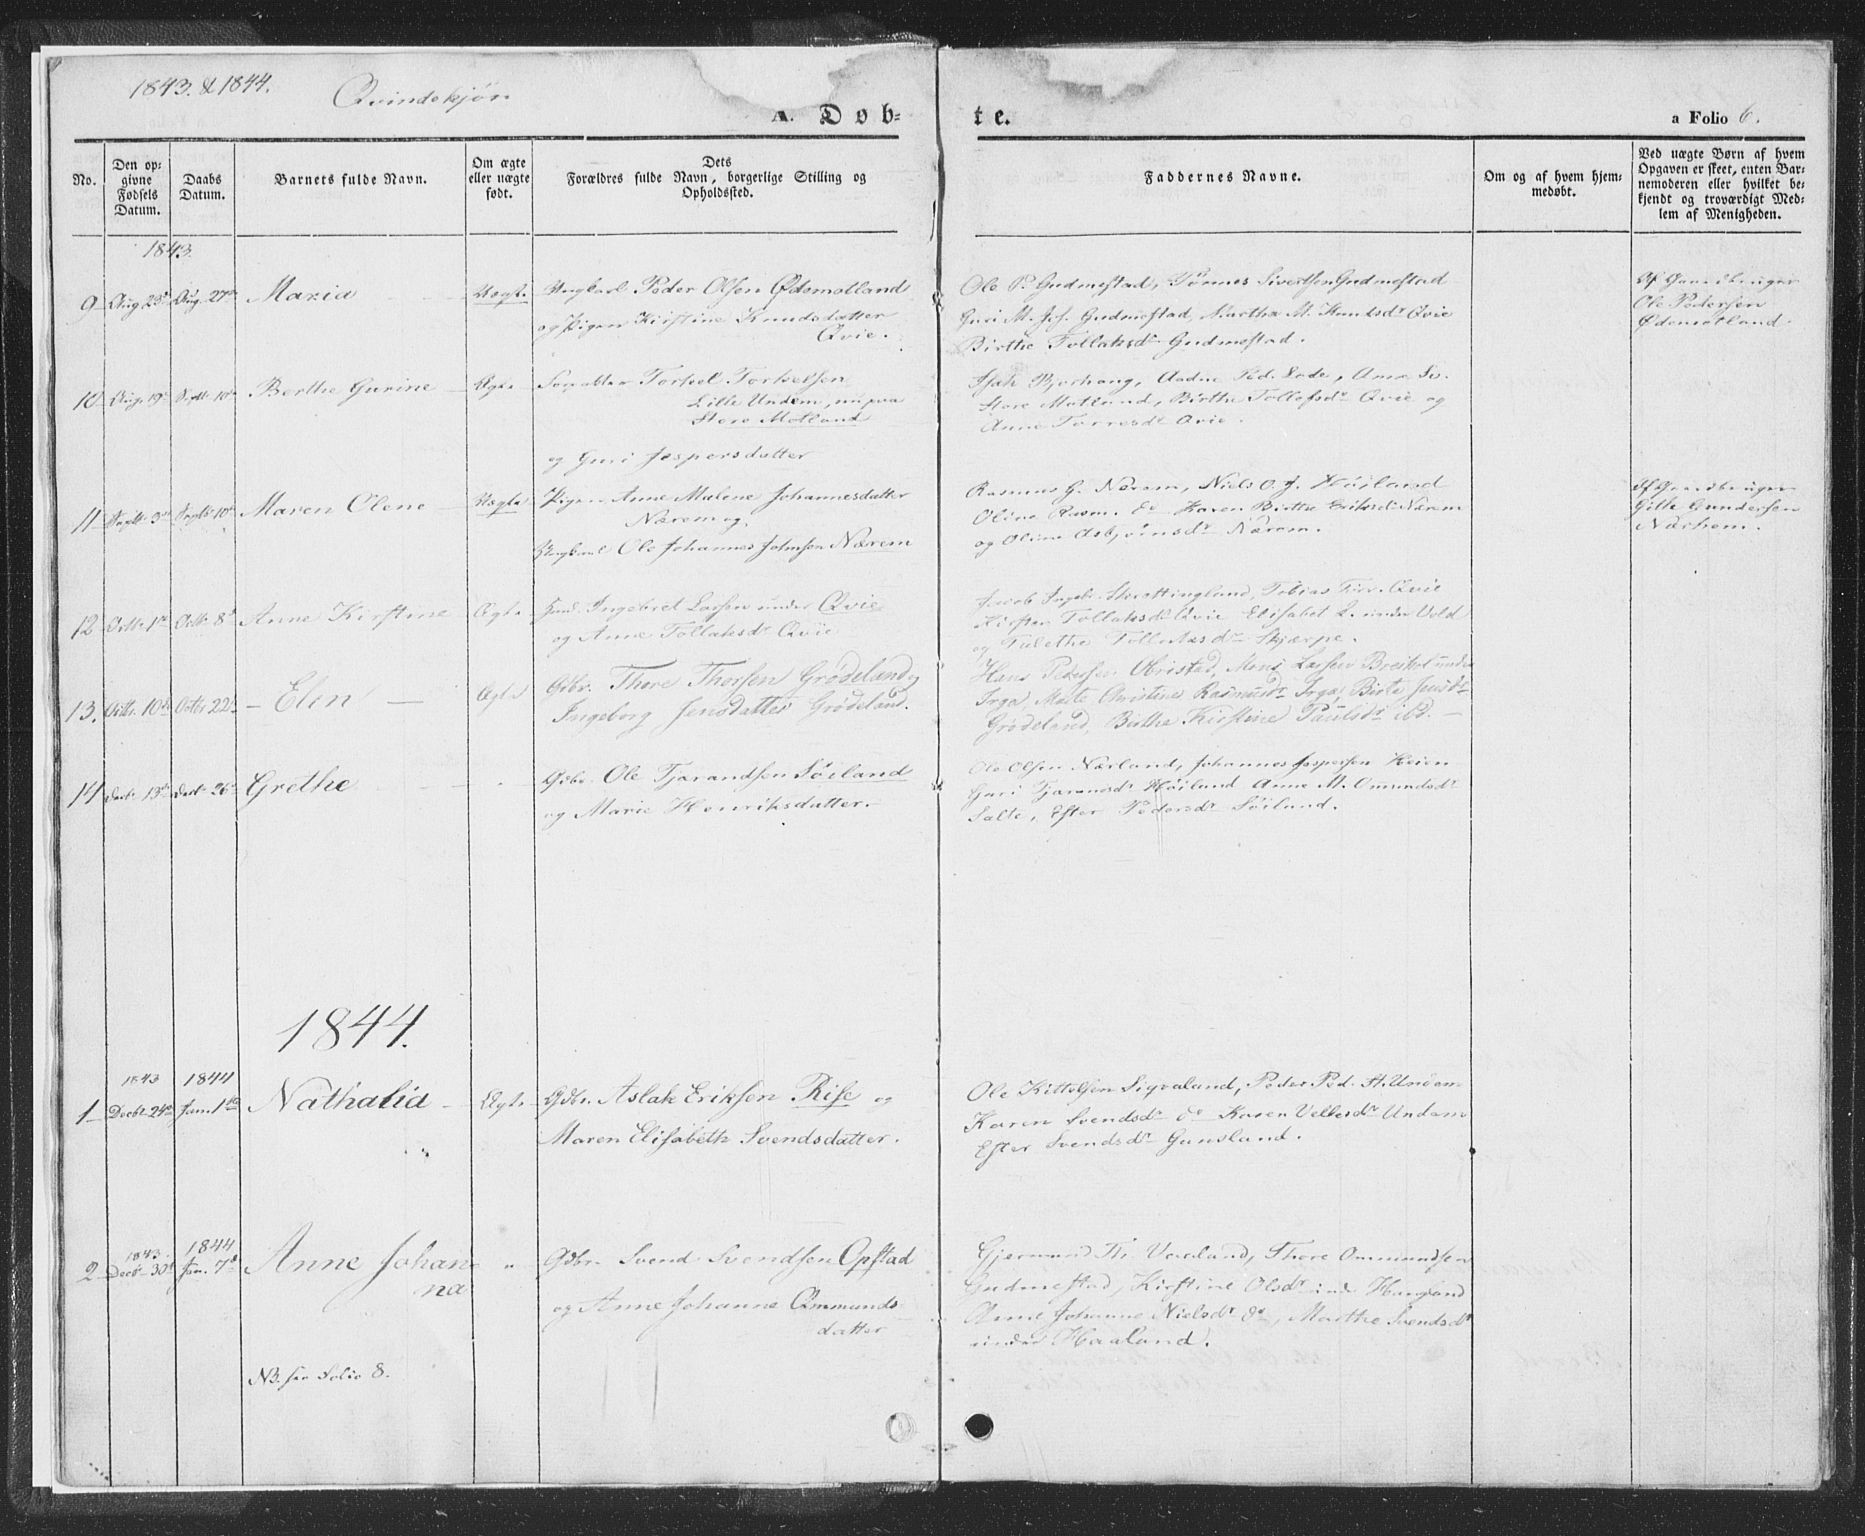 1843 & 1844.
Qvindekjøn
A. Døb-
te.
a Folio 6.
No.
Den op-
givne
Fødsels
Datum.
Daabs
Datum.
Barnets fulde Navn.
Om ægte
eller uægte
født.
Dets
Forældres fulde Navn, borgerlige Stilling og
Opholdssted.
Faddernes Navne.
Om og af hvem hjem-
medøbt.
Ved uægte Børn af hvem
Opgaven er skeet, enten Bar-
nemoderen eller hvilket be-
kjendt og troværdigt Med-
lem af Menigheden.
1843.
9 Aug. 23d Aug. 27de Maria Uægte Ungkarl Peder Olsen Ødemotland
og Pigen Kirstine Knudsdatter
Qvie.
Ole P. Gudmestad, Tønnes Sivertsen Gudmestad
Guri M. Joh. Gudmestad, Martha M. Knudsdr Qvie
Birthe Tollaksdr Gudmestad.
Af Gaardbruger
Ole Pedersen
Ødemotland.
10 Aug. 19d Septr 10de Berthe Gurine Ægte Torkel Torkelsen
Lille Undem, nu paa
Store Motland
og Guri Jespersdatter
Bjorhaug, Aadne Ped.
Store Motland, Birthe Tollefsdr Qvie og
Anne Torresdr Qvie.
11 Septr 3de Septr 10de Maren Olene Uægte Pigen Anne Malene Johannesdatter
Nærem og
Ungkarl Ole Johannes Johnsen Nærem
Rasmus G. Nærem, Niels O. J. Høiland
Oline Rasm. do Karen Birthe Eriksdr Nærem
og Oline Asbjørnsdr Nærem.
Af Gaardbruger
Gitle Gundersen
Nærhem.
12 Octbr 1ste Octbr 8de Anne Kirstine Ægte Ingebret Larsen under Qvie
og Anne Tollaksdr Qvie
Jacob Ingebr. Tobias Torr. Qvie
Kirsten Tollaksdr Qvie Elisabet L. under Vold
og Tollaksdr Skjærpe.
13. Octbr. 10de Octbr 22de - Elen - Ægte Gdbr. Thore Thorsen Grødeland og
Ingeborg Jensdatter Grødeland.
Hans Pedersen Obristad, Mons Larsen Breiholt under
Irga, Marte Christine Rasmusdr Irga, Birte Jensdr
Grødeland, Birthe Kirstine Paulsdr ibd. -
14 Decbr 13de Decbr 26de Grethe Gdbr. Ole Tjarandsen Søiland
og Marie Henriksdatter.
Ole Olsen Nærland, Johannes Jespersen Heien
Guri Tjarandsdr Høiland Anne M. Omundsdr
Salte, Efter Pedersdr Søiland.
1844.
1843 1844
1 Decbr 24de Jan. 1ste Nathalia - Ægte Gdbr. Aslak Eriksen Rise og
Maren Elisabeth Svendsdatter.
Ole Kittelsen Sigvaland, Peder Ped. St. Undem
Karen Svendsdr do Karen Vellesdr Undem
Efter Svendsdr Gunsland.
1843. 1844
2 Decbr 30te Jan. 7de Anne Johan-
na
" Gdbr. Svend Svendsen Opstad
og Anne Johanne Ommunds-
datter
Gjermund Th. Thore Ommundsen
Gudmestad, Kirstine Olsdr
Anne Johanne Nielsdr do, Marthe Svendsdr
under Haaland.
NB. see Folio 8.